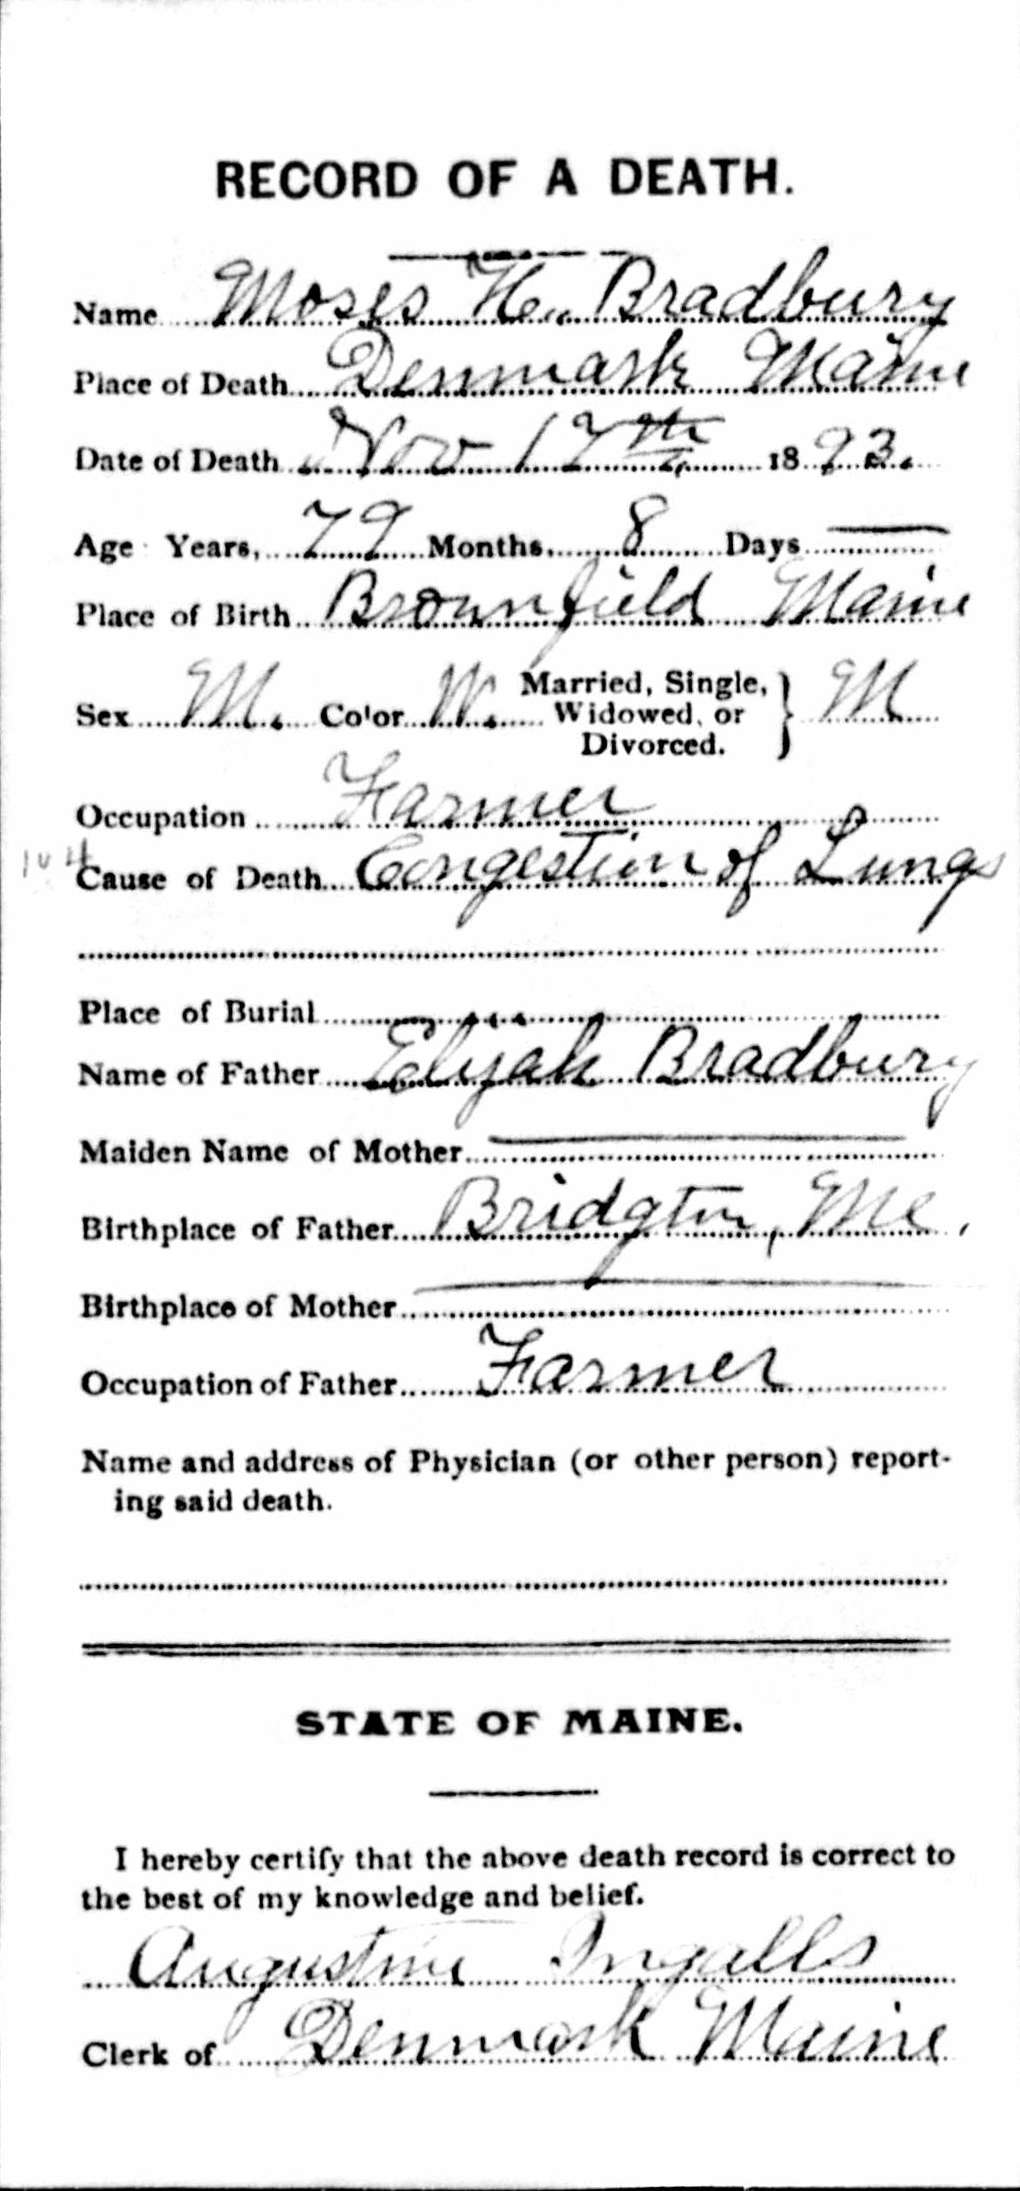 RECORD OF A DEATH.
Name Moses H. Bradbury
Place of Death Denmark Maine
Date of Death Nov 17th 1893.
Age Years, 79 Months, 8 Days —
Place of Birth Brownfield Maine
Sex M. Color W. Married, Single, Widowed, or Divorced. } M
Occupation Farmer
104 Cause of Death Congestion of Lungs
Place of Burial
Name of Father Elijah Bradbury
Maiden Name of Mother —
Birthplace of Father Bridgton, Me.
Birthplace of Mother —
Occupation of Father Farmer
Name and address of Physician (or other person) report-
ing said death.
STATE OF MAINE.
I hereby certify that the above death record is correct to
the best of my knowledge and belief.
Augustine Ingalls
Clerk of Denmark Maine